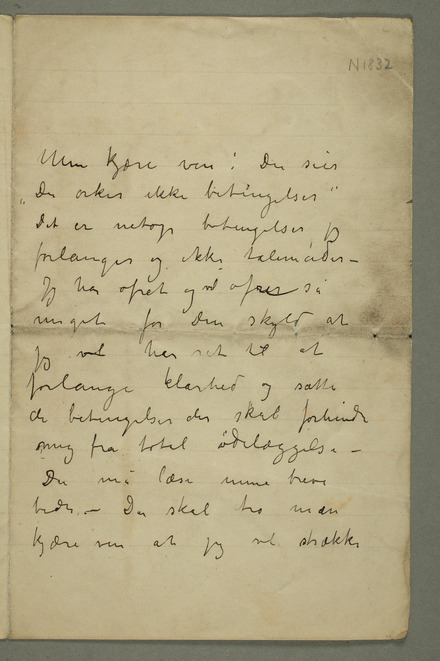 N1832
Min kjære ven! Du sier
"Du orker ikke betingelser"
Det er netop betingelser jeg
forlanger og ikke talemåder –
Jeg har ofret og vil ofre så
meget for din skyld at
jeg vel har ret til at
forlange klarhed og sætte
de betingelser der skal forhindre
mig fra total ødelæggelse –
Du må læse mine breve
bedre – Du skal tro man
kjære ven at jeg vil strække